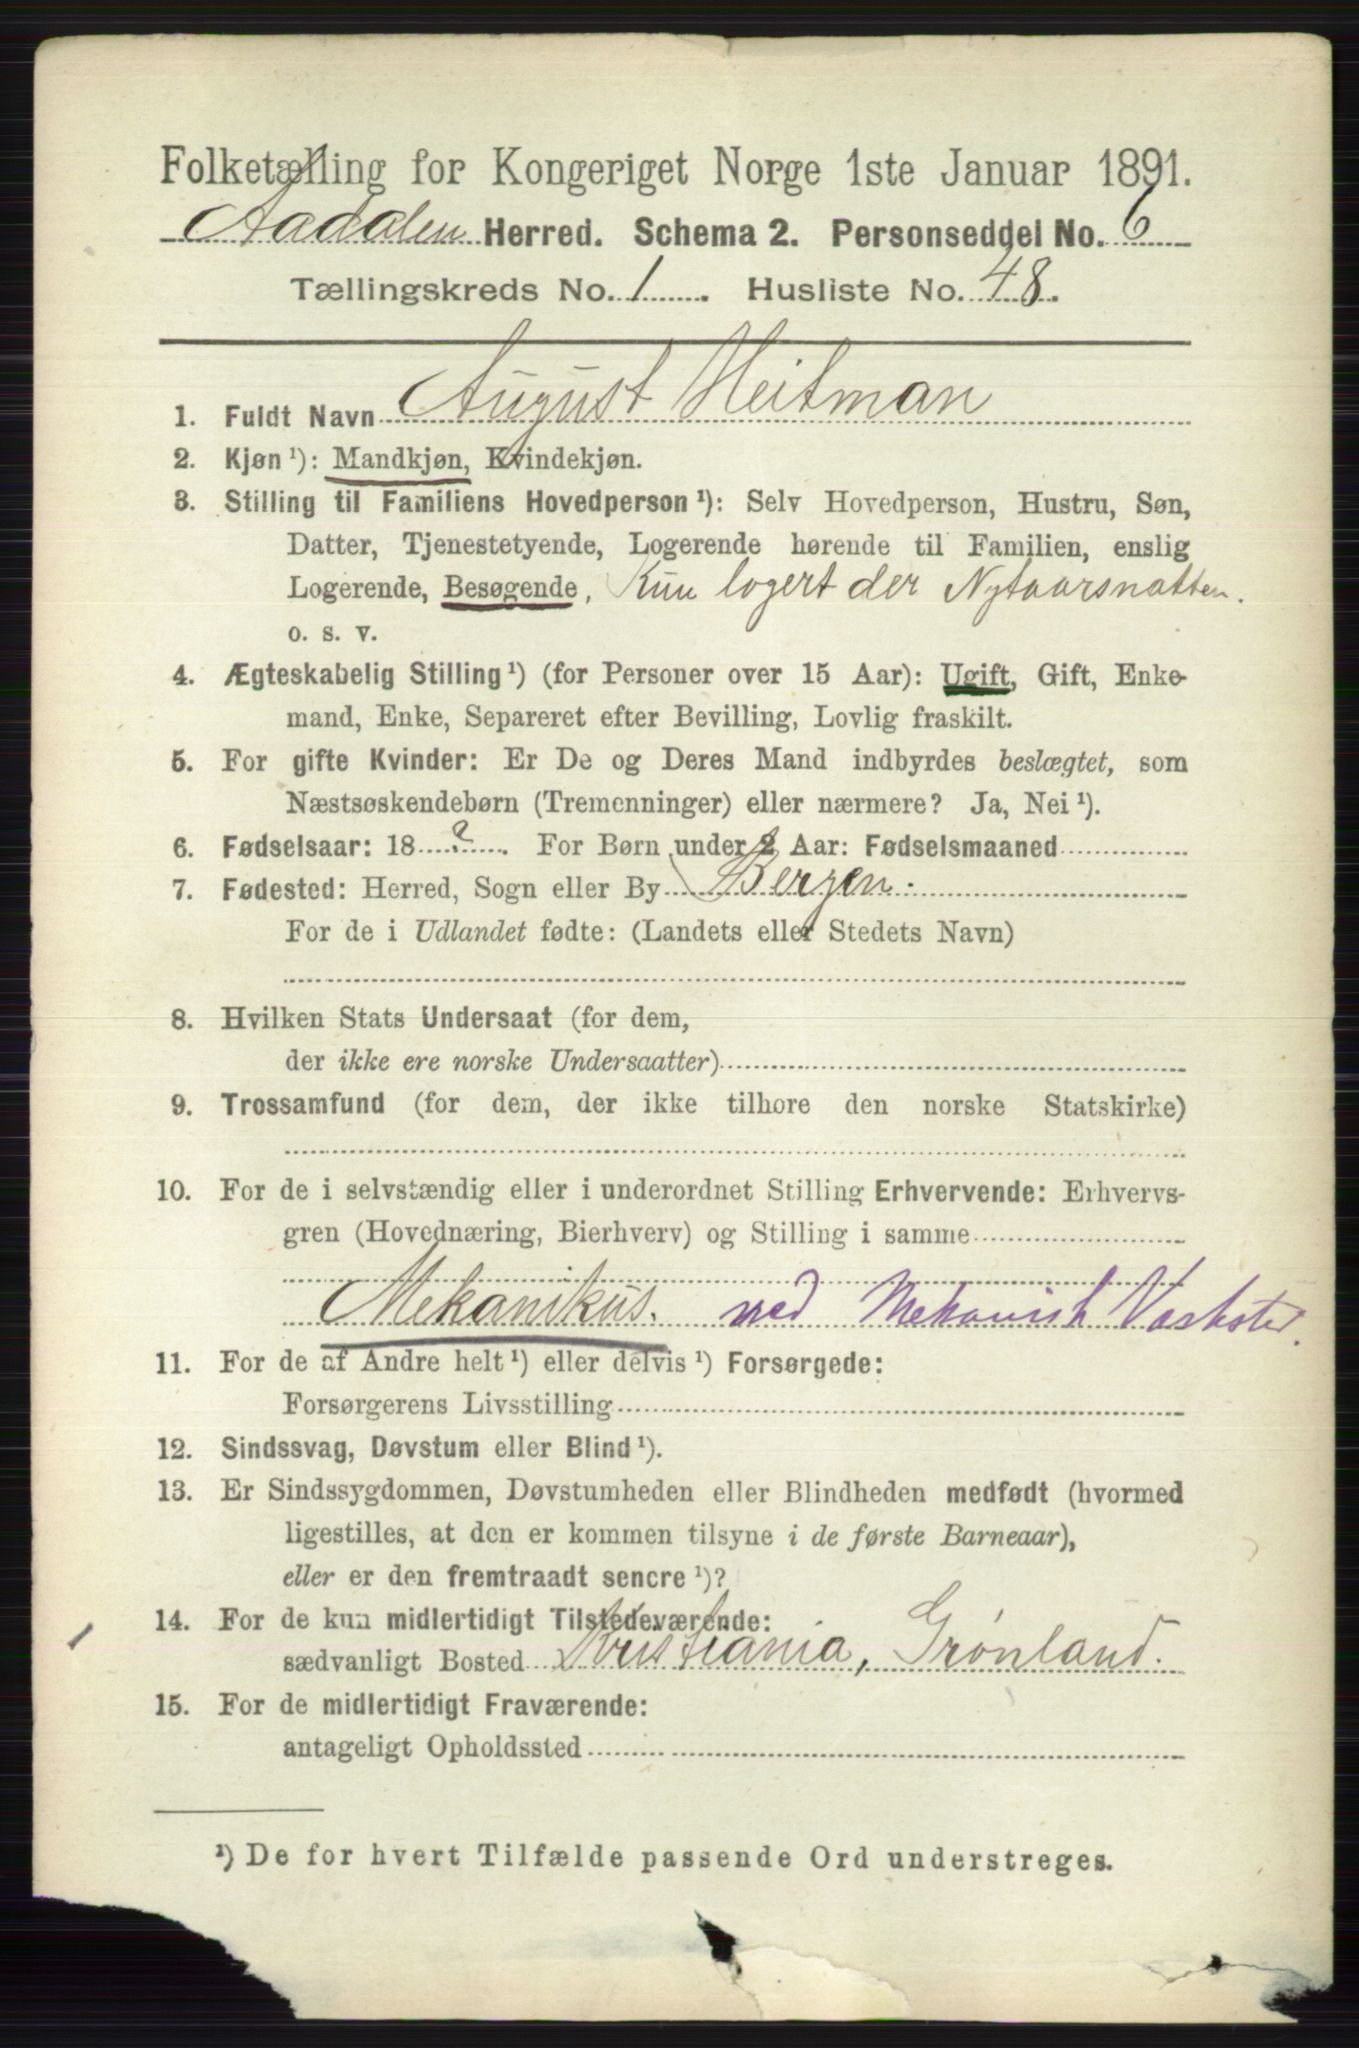 Folketælling for Kongeriget Norge 1ste Januar 1891.
Aadalen Herred. Schema 2. Personseddel No. 6
Tællingskreds No. 1. Husliste No. 48.
1. Fuldt Navn August Heitman
2. Kjøn ¹): Mandkjøn, Kvindekjøn.
3. Stilling til Familiens Hovedperson ¹): Selv Hovedperson, Hustru, Søn,
Datter, Tjenestetyende, Logerende hørende til Familien, enslig
Logerende, Besøgende, Kun logert der Nytaarsnatten.
o. s. v.
4. Ægteskabelig Stilling ¹) (for Personer over 15 Aar): Ugift, Gift, Enke-
mand, Enke, Separeret efter Bevilling, Lovlig fraskilt.
5. For gifte Kvinder: Er De og Deres Mand indbyrdes beslægtet, som
Næstsøskendebørn (Tremenninger) eller nærmere? Ja, Nei ¹).
6. Fødselsaar: 18 ? . For Børn under 2 Aar: Fødselsmaaned
7. Fødested: Herred, Sogn eller By Bergen.
For de i Udlandet fødte: (Landets eller Stedets Navn)
8. Hvilken Stats Undersaat (for dem,
der ikke ere norske Undersaatter)
9. Trossamfund (for dem, der ikke tilhøre den norske Statskirke)
10. For de i selvstændig eller i underordnet Stilling Erhvervende: Erhvervs-
gren (Hovednæring, Bierhverv) og Stilling i samme
Mekanikus. ved Mekanisk Værksted.
11. For de af Andre helt ¹) eller delvis ¹) Forsørgede:
Forsørgerens Livsstilling
12. Sindssvag, Døvstum eller Blind ¹).
13. Er Sindssygdommen, Døvstumheden eller Blindheden medfødt (hvormed
ligestilles, at den er kommen tilsyne i de første Barneaar),
eller er den fremtraadt senere ¹)?
14. For de kun midlertidigt Tilstedeværende:
sædvanligt Bosted Kristiania, Grønland.
15. For de midlertidigt Fraværende:
antageligt Opholdssted
¹) De for hvert Tilfælde passende Ord understreges.